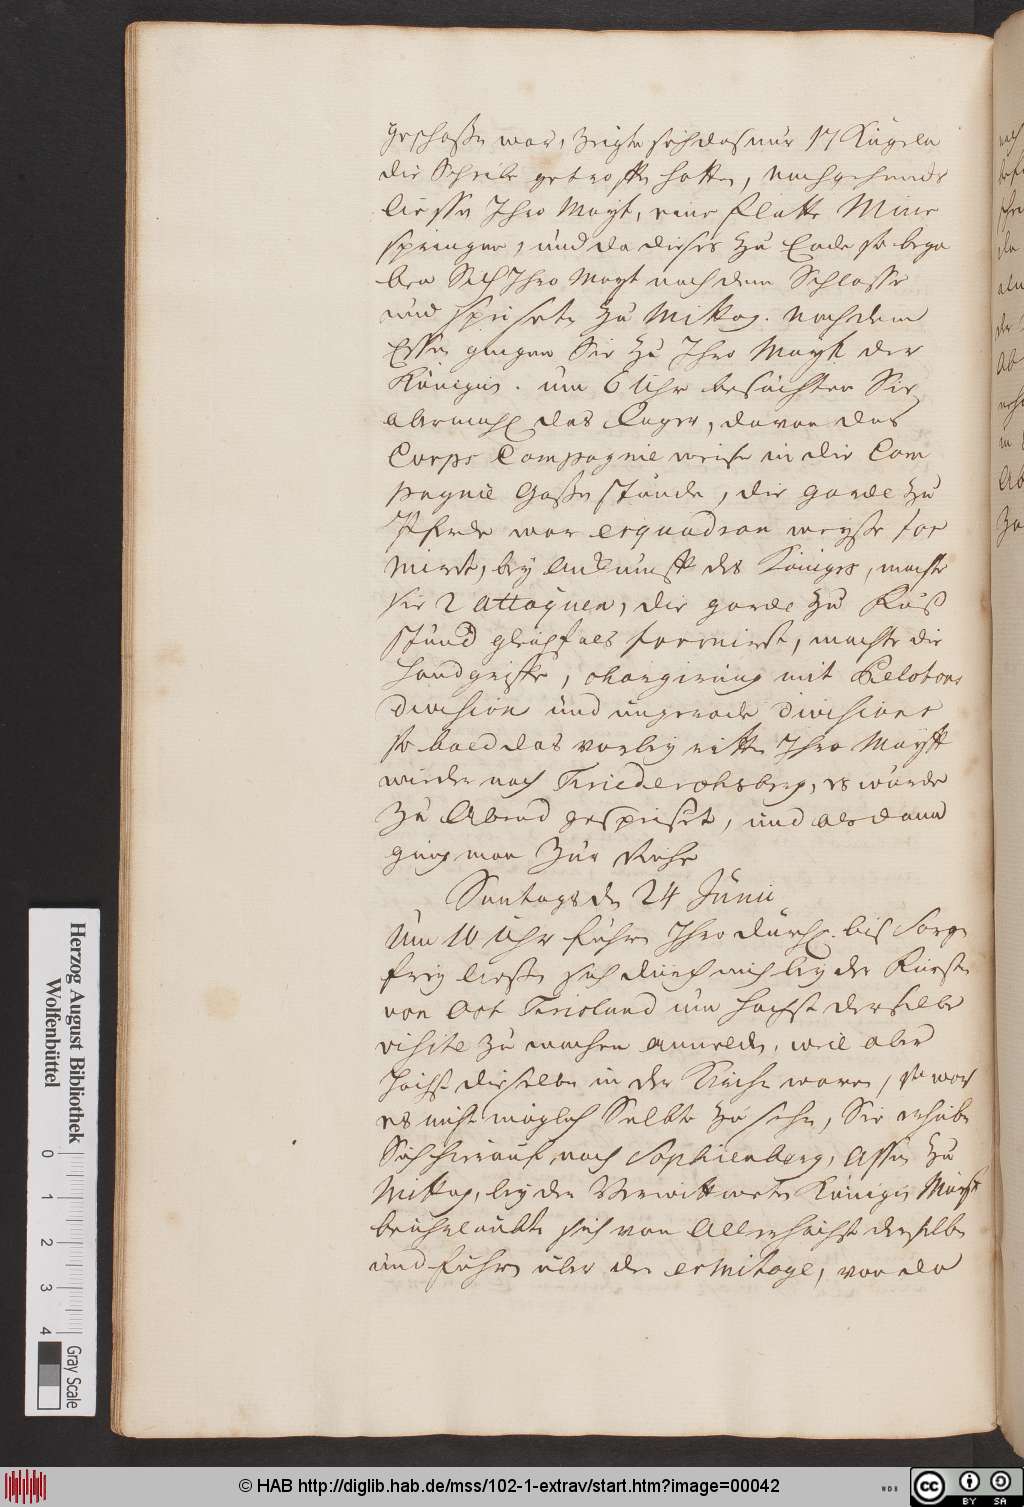 geschoßen war, zeigte sich das nur 17 Kugeln
die Scheibe getroffen hatten, nachgehends
liessen Ihro Mayt, eine flatte Mine
springen, und da dieses zu Ende so bega
ben Sich Ihro Mayt nach dem Schlosse
und speiseten zu Mittag. Nach dem
Essen gingen Sie zu Ihro Maytt der
Königin. um 6 Uhr besuchten Sie
abermahl das Lager, davon das
Corps Compagnie weise in die Com
pagnie Gaßen stunde, die garde zu
Pferde war esquadron weyse for
miert, bey Ankunfft des Königes, machte
sie 2 attaquen, die garde zu Fuß
stund gleichfals formirt, machte die
Handgriffe, chargirung mit Pelotons
Division und ungerade Divisions
so bald das vorbey ritten Ihro Maytt
wieder nach Friederichsberg, es wurde
zu Abend gespeiset, und als dann
ging man zur Ruhe
Sontags den 24 Junii
Um 10 Uhr fuhren Ihro Durchl. bis Sorgen
frey ließen sich durch mich bey der Fürstin
von Ost Friesland um Höchst derselben
visite zu machen anmelden, weil aber
Höchst dieselbe in der Kirche waren, so war
es nicht möglich Selbte zu sehen, Sie erhuben
Sich hierauf nach Sophienberg, Assen zu
Mittag, bey der Verwittweten Königin Mayst
beuhrlaubten sich von Allerhöchst derselben
und fuhren über der ermitage, von da
Herzog August Bibliothek
Wolfenbüttel
0 1 2 3 4
Gray Scale
© HAB http://diglib.hab.de/mss/102-1-extrav/start.htm?image=00042
WDB
cc BY SA